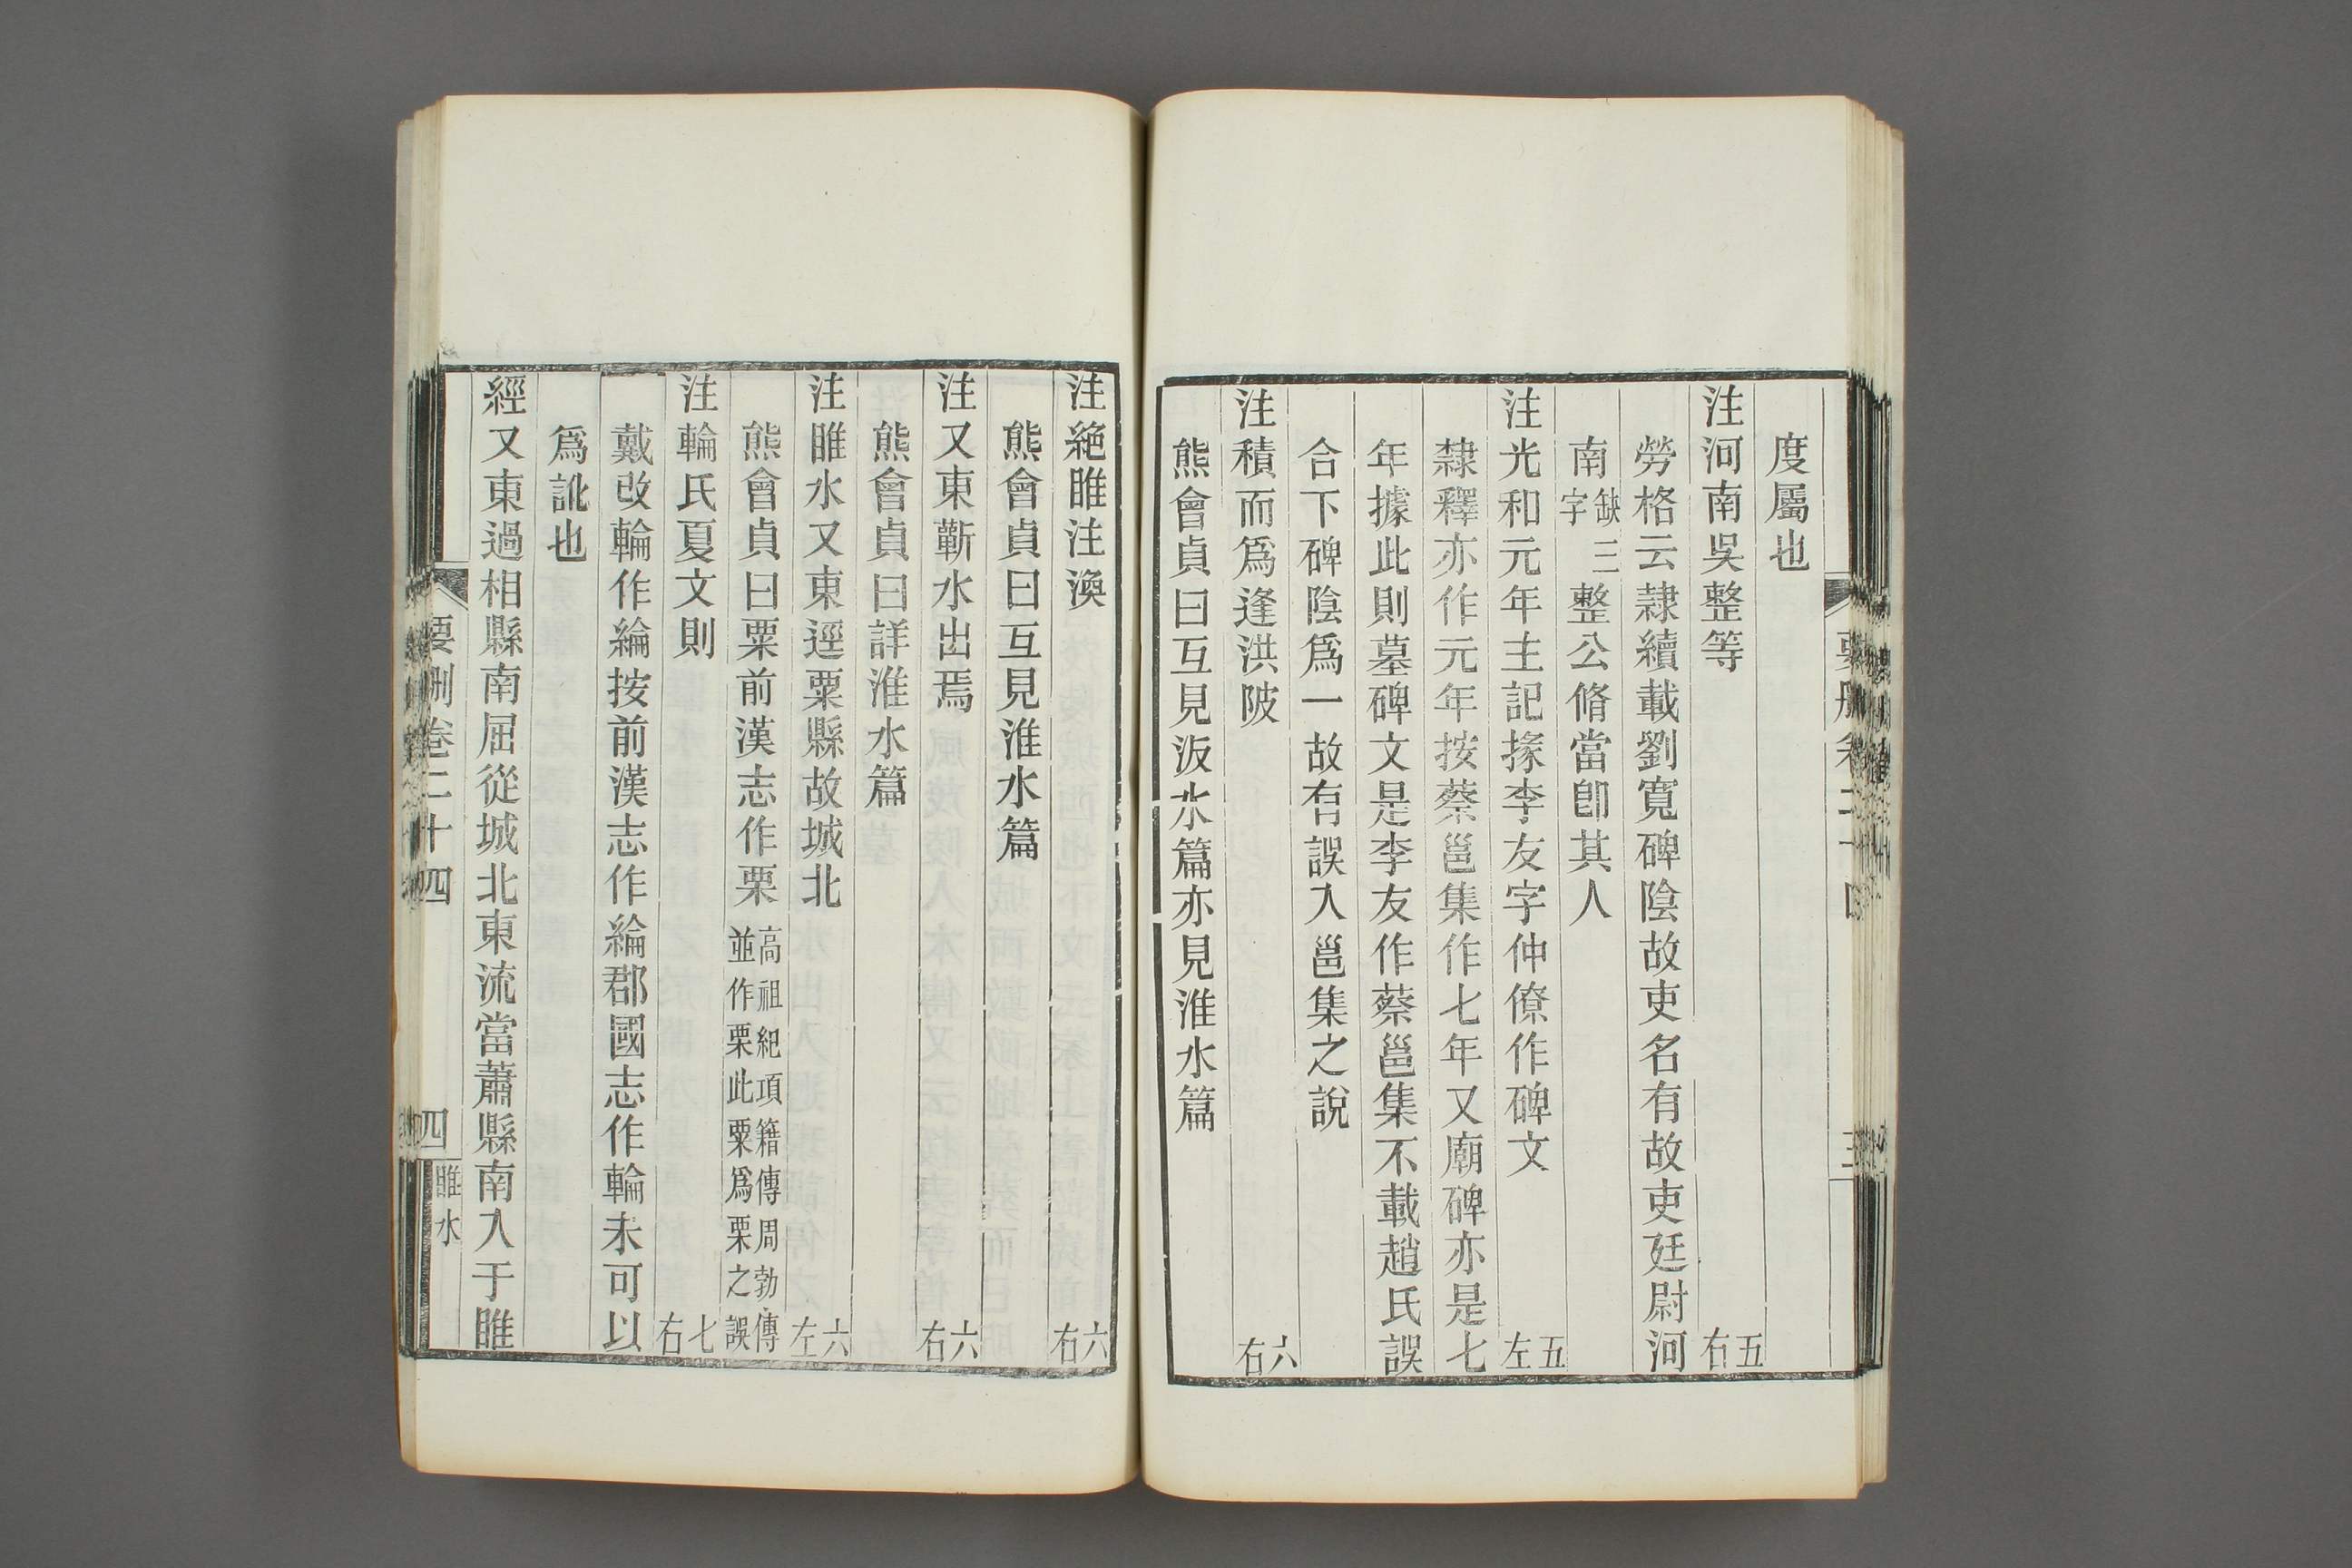 度屬也
注河南吳整等 五右
勞格云隷續載劉寬碑陰故吏名有故吏廷尉河
南缺三字整公脩當卽其人
注光和元年主記掾李友字仲僚作碑文 五左
隸釋亦作元年按蔡邕集作七年又廟碑亦是七
年據此則墓碑文是李友作蔡邕集不載趙氏誤
合下碑陰爲一故有誤入邕集之說
注積而爲逢洪陂 六右
熊會貞曰互見汳水篇亦見淮水篇
注絶睢注渙 六右
熊會貞曰互見淮水篇
注又東蘄水出焉 六右
熊會貞曰詳淮水篇
注睢水又東逕粟縣故城北 六左
熊會貞曰粟前漢志作栗高祖紀項籍傳周勃傳並作栗此粟爲栗之誤
注輪氏夏文則 七右
戴改輪作綸按前漢志作綸郡國志作輪未可以
爲訛也
經又東過相縣南屈從城北東流當蕭縣南入于睢
要刪卷二十四 四 睢水